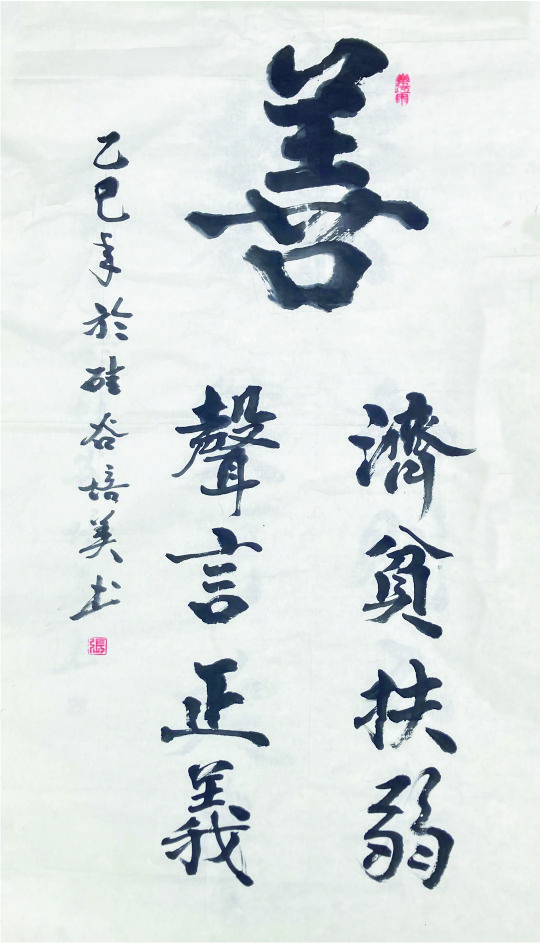 善
濟貧扶弱
聲言正義
乙巳年於硅谷培美书
張